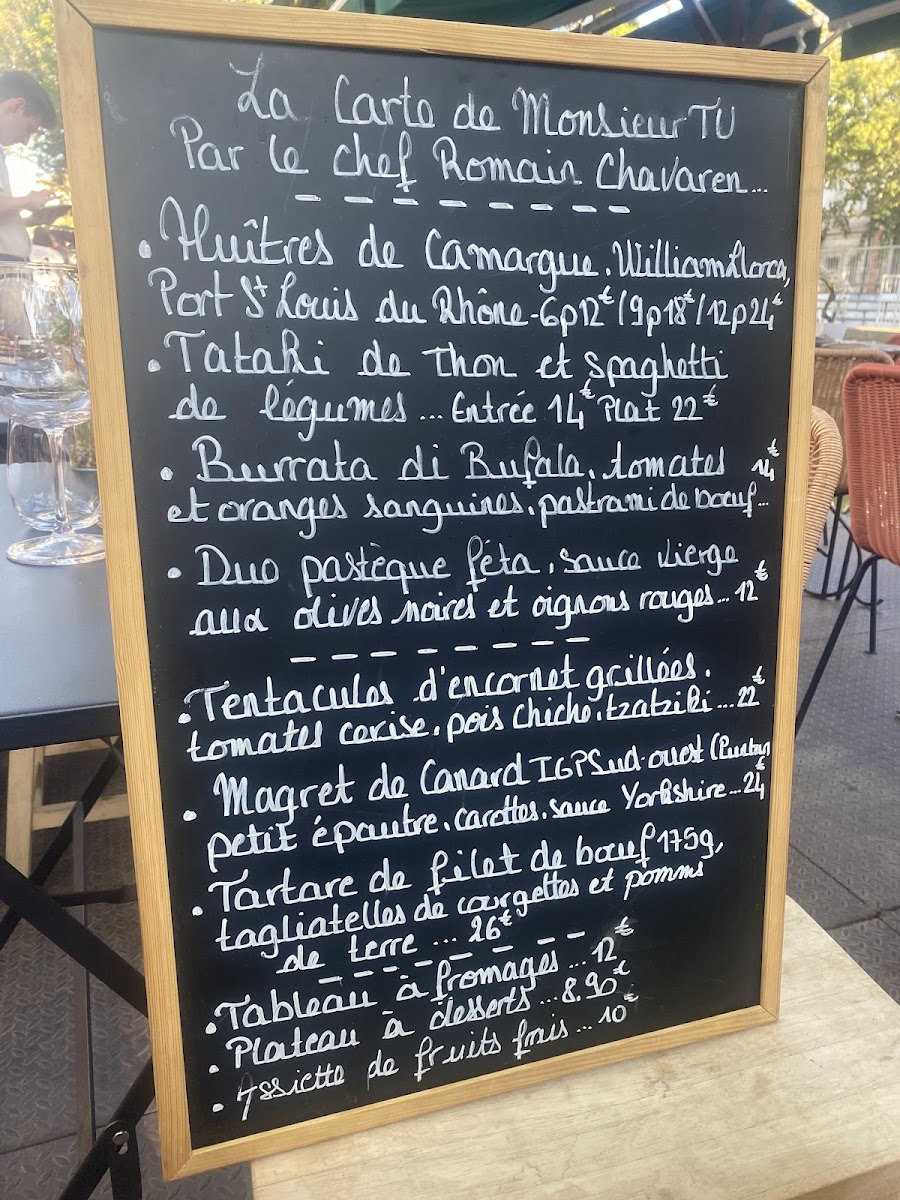 La Carte de Monsieur TU
Par le chef Romain Chavaren...
• Huîtres de Camargue. William Llorca,
Port St Louis du Rhône - 6p12€ / 9p18€ / 12p24€
• Tataki de Thon et spaghetti
de légumes ... Entrée 14€ Plat 22€
• Burrata di Bufala. tomates 14€
et oranges sanguines. pastrami de boeuf...
• Duo pastèque féta. sauce vierge
aux olives noires et oignons rouges... 12€
• Tentacules d'encornet grillées.
tomates cerise. pois chiche. tzatziki ... 22€
• Magret de Canard IGP Sud-ouest
petit épautre. carottes. sauce Yorkshire... 24€
• Tartare de filet de boeuf 175g,
tagliatelles de courgettes et pommes
de terre ... 26€
• Tableau à fromages ... 12€
• Plateau à desserts ... 8.90€
• Assiette de fruits frais ... 10€